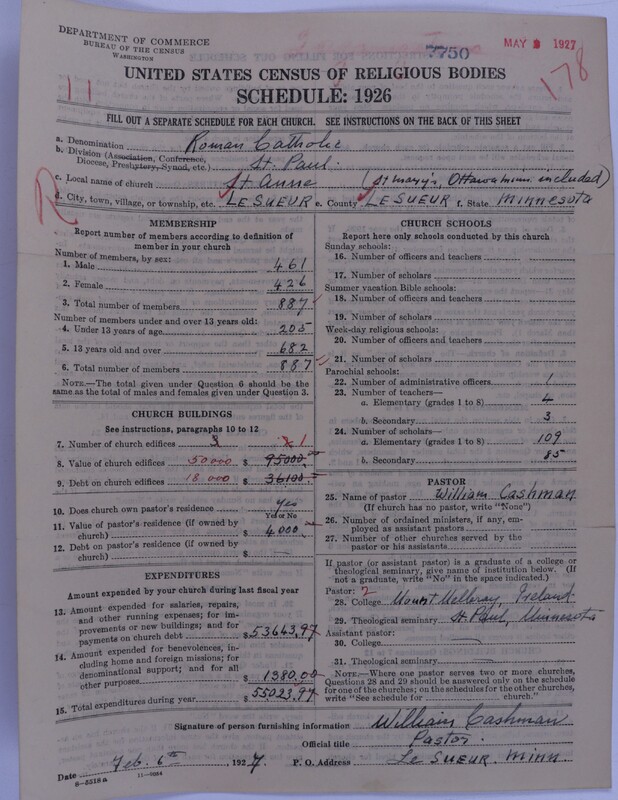 DEPARTMENT OF COMMERCE
BUREAU OF THE CENSUS
WASHINGTON
7750
MAY 3 1927
178
11
UNITED STATES CENSUS OF RELIGIOUS BODIES
SCHEDULE: 1926
FILL OUT A SEPARATE SCHEDULE FOR EACH CHURCH. SEE INSTRUCTIONS ON THE BACK OF THIS SHEET
a. Denomination Roman Catholic
b. Division (Association, Conference, Diocese, Presbytery, Synod, etc.) St. Paul.
c. Local name of church St Anne (St Mary's, Ottawa Minn included)
d. City, town, village, or township, etc. LE SUEUR e. County LE SUEUR f. State Minnesota
R
MEMBERSHIP
Report number of members according to definition of member in your church
Number of members, by sex:
1. Male 461
2. Female 426
3. Total number of members 887
Number of members under and over 13 years old:
4. Under 13 years of age 205
5. 13 years old and over 682
6. Total number of members 887
NOTE.—The total given under Question 6 should be the same as the total of males and females given under Question 3.
CHURCH BUILDINGS
See instructions, paragraphs 10 to 12
7. Number of church edifices 3 1
8. Value of church edifices 50000 $ 95000
9. Debt on church edifices 18000 $ 36100
10. Does church own pastor's residence Yes
Yes or No
11. Value of pastor's residence (if owned by church) $ 4000
12. Debt on pastor's residence (if owned by church) $
EXPENDITURES
Amount expended by your church during last fiscal year
13. Amount expended for salaries, repairs, and other running expenses; for improvements or new buildings; and for payments on church debt $ 53643.97
14. Amount expended for benevolences, including home and foreign missions; for denominational support; and for all other purposes 1380.00
15. Total expenditures during year $ 55023.97
CHURCH SCHOOLS
Report here only schools conducted by this church
Sunday schools:
16. Number of officers and teachers
17. Number of scholars
Summer vacation Bible schools:
18. Number of officers and teachers
19. Number of scholars
Week-day religious schools:
20. Number of officers and teachers
21. Number of scholars
Parochial schools:
22. Number of administrative officers 1
23. Number of teachers—
a. Elementary (grades 1 to 8) 4
b. Secondary 3
24. Number of scholars—
a. Elementary (grades 1 to 8) 109
b. Secondary 85
PASTOR
25. Name of pastor William Cashman
(If church has no pastor, write "None")
26. Number of ordained ministers, if any, employed as assistant pastors
27. Number of other churches served by the pastor or his assistants
If pastor (or assistant pastor) is a graduate of a college or theological seminary, give name of institution below. (If not a graduate, write "No" in the space indicated.)
Pastor: 2
28. College Mount Melleray, Ireland
29. Theological seminary St. Paul, Minnesota
Assistant pastor:
30. College
31. Theological seminary
NOTE.—Where one pastor serves two or more churches, Questions 28 and 29 should be answered only on the schedule for one of the churches; on the schedules for the other churches, write "See schedule for church."
Signature of person furnishing information William Cashman
Official title Pastor.
Date Feb. 6th 1927 P. O. Address Le SUEUR. Minn
8-5518a 11-9084